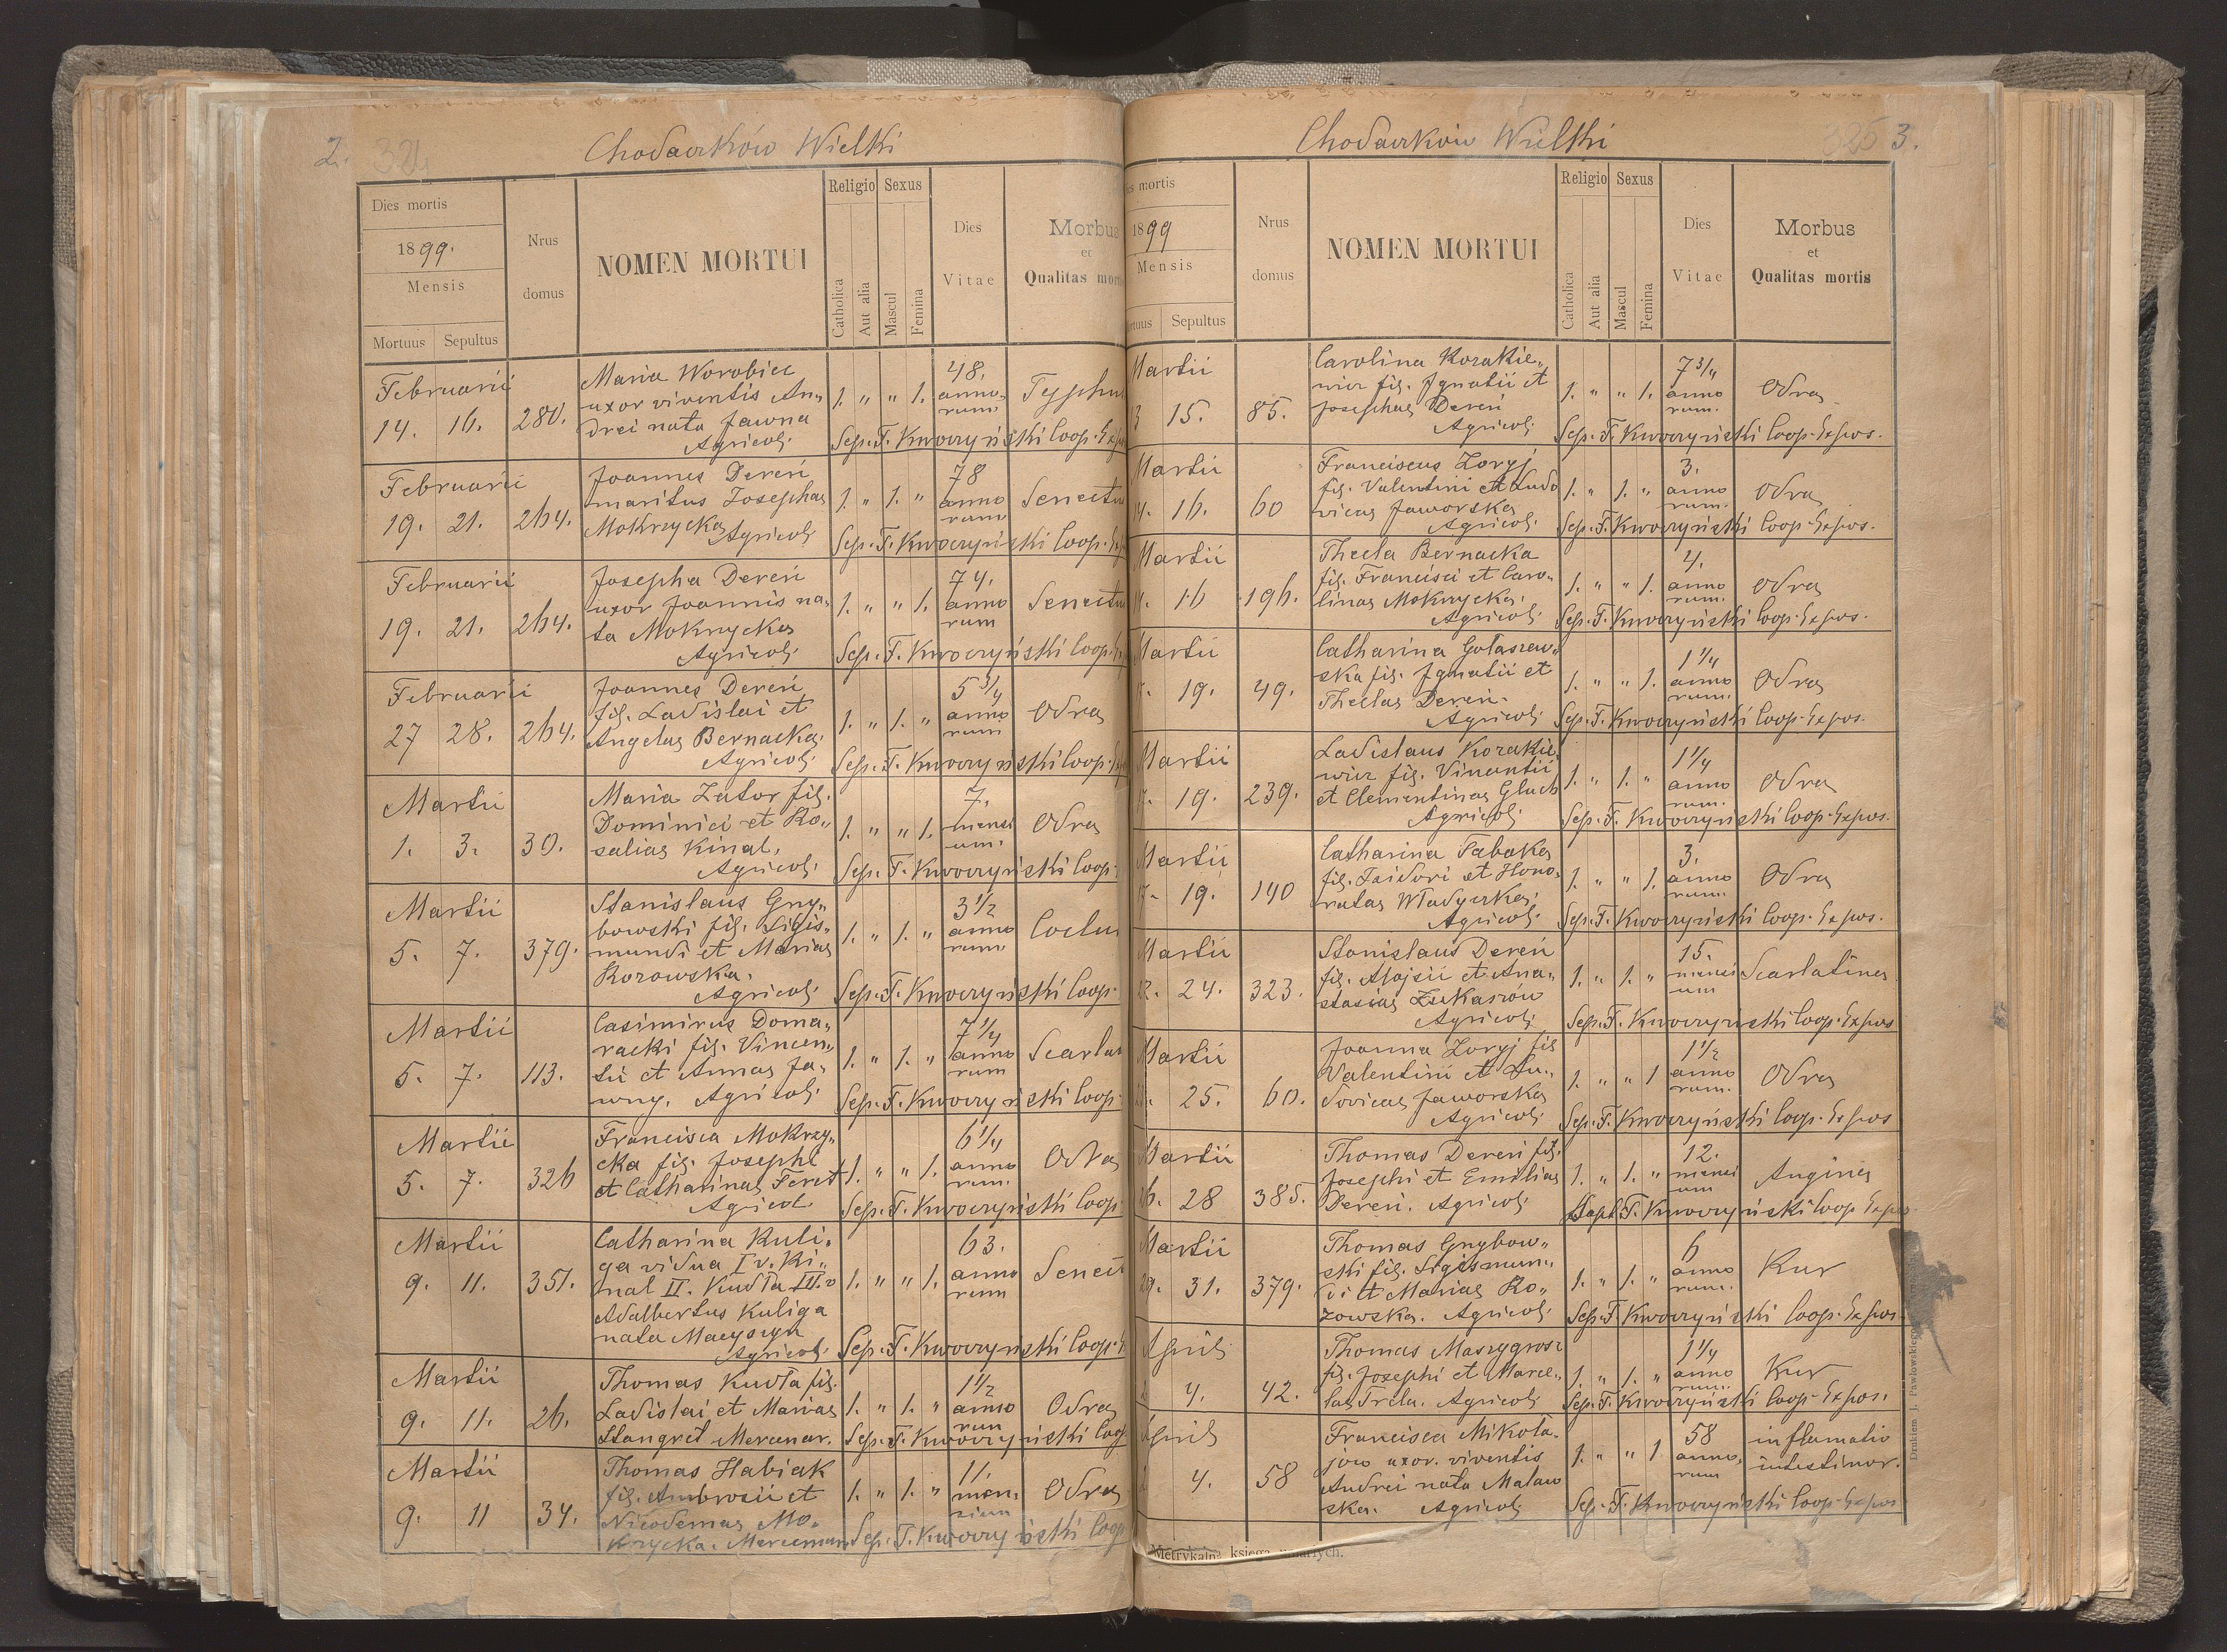 2.
Chodaczków Wielki
Dies mortis
1899.
Mensis
Mortuus Sepultus
Nrus domus
NOMEN MORTUI
Religio Sexus
Catholica
Aut alia
Mascul
Femina
Dies Vitae
Morbus
et
Qualitas mortis
Februarii
14. 16. 280.
Maria Worobiec
uxor viventis An„
drei nata Jawna
Agricol.
1. „ „ 1.
48.
anno„
rum
Typhu
Sep. F. Kwoczyński Coop. Exp
Februarii
19. 21. 264.
Joannes Dereń
maritus Josephae
Mokrzycka Agricol.
1. „ 1. „
78
anno
rum
Senectu
Sep. F. Kwoczyński Coop. Exp
Februarii
19. 21. 264.
Josepha Dereń
uxor Joannis na„
ta Mokrzycka
Agricol.
1. „ „ 1.
74.
anno
rum
Senectu
Sep. F. Kwoczyński Coop.
Februarii
27 28. 264.
Joannes Dereń
fil. Ladislai et
Angelae Bernacka.
Agricol.
1. „ 1. „
5 3/4
anno
rum
Odra
Sep. F. Kwoczyński Coop.
Martii
1. 3. 30.
Maria Zator fil.
Dominici et Ro„
saliae Kinal.
Agricol.
1. „ „ 1.
7.
mensi
um.
Odra
Sep. F. Kwoczyński Coop.
Martii
5. 7. 379.
Stanislaus Gry„
bowski fil. Sigis„
mundi et Mariae
Rozowska.
Agricol.
1. „ 1. „
3 1/2
anno
rum
Coclu
Sep. F. Kwoczyński Coop.
Martii
5. 7. 113.
Casimirus Doma„
racki fil. Vincen„
tii et Annae Ja„
wny. Agricol.
1. „ 1. „
7 1/4
anno
rum
Scarla
Sep. F. Kwoczyński Coop.
Martii
5. 7. 326
Francisca Mokrzy„
cka fil. Josephi
et Catharinae Feret
Agricol.
1. „ „ 1.
6 1/4
anno
rum.
Odra
Sep. F. Kwoczyński Coop.
Martii
9. 11. 351.
Catharina Kuli„
ga vidua I v. Ki„
nal II. Kudła III. v
Adalbertus Kuliga
nata Macyszyn
Agricol.
1. „ „ 1.
63.
anno
rum
Senect
Sep. F. Kwoczyński Coop.
Martii
9. 11. 26.
Thomas Kudła fil.
Ladislai et Mariae
Stangret Mercenar.
1. „ 1. „
1 1/2
anno
rum
Odra
Sep. F. Kwoczyński Coop.
Martii
9. 11 34.
Thomas Habiak
fil. Ambrosii et
Nicodemae Mo„
krzycka. Mercenar
1. „ 1. „
11.
men„
sium
Odra
Sep. F. Kwoczyński Coop
325 3.
Chodaczków Wielki
es mortis
1899
Mensis
rtuus Sepultus
Nrus domus
NOMEN MORTUI
Religio Sexus
Catholica
Aut alia
Mascul
Femina
Dies Vitae
Morbus
et
Qualitas mortis
Martii
15. 85.
Carolina Korakie„
wicz fil. Ignatii et
Josephae Dereń
Agricol.
1. „ „ 1.
7 3/4
anno
rum.
Odra
Sep. F. Kwoczyński Coop. Expos.
Martii
16. 60
Franciscus Zoryj
fil. Valentini et Ludo
vicae Jaworska
Agricol.
1. „ 1. „
3.
anno
rum.
Odra
Sep. F. Kwoczyński Coop. Expos.
Martii
16 196.
Thecla Bernacka
fil. Francisci et Caro„
linae Mokrzycka.
Agricol.
1. „ „ 1.
4.
anno
rum.
Odra
Sep. F. Kwoczyński Coop. Expos.
Martii
19. 49.
Catharina Gołaszew„
ska fil. Ignatii et
Theclae Dereń.
Agricol.
1. „ „ 1.
1 1/4
anno
rum.
Odra
Sep. F. Kwoczyński Coop. Expos.
Martii
19. 239.
Ladislaus Korakie„
wicz fil. Vincentii
et Clementinae Gluch
Agricol.
1. „ 1. „
1 1/4
anno
rum.
Odra
Sep. F. Kwoczyński Coop. Expos.
Martii
19. 140
Catharina Tabaka
fil. Isidori et Hono„
ratae Władyczka.
Agricol.
1. „ „ 1.
3.
anno
rum.
Odra
Sep. F. Kwoczyński Coop. Expos.
Martii
22. 24. 323.
Stanislaus Dereń
fil. Alojsii et Ana„
stasiae Łukasiów
Agricol.
1. „ 1. „
15.
mensi
um
Scarlatina
Sep. F. Kwoczyński Coop. Expos
Martii
25. 60.
Joanna Zoryj fil
Valentini et Lu„
dovicae Jaworska
Agricol.
1. „ „ 1
1 1/2
anno
rum.
Odra
Sep. F. Kwoczyński Coop. Expos
Martii
26. 28 385.
Thomas Dereń fil.
Josephi et Emiliae
Dereń. Agricol.
1. „ 1. „
12.
mensi
um
Angina
F. Kwoczyński Coop. Expos
Martii
29. 31. 379.
Thomas Grybow„
ski fil. Sigismun„
di et Mariae Ro„
zowska. Agricol.
1. „ 1. „
6
anno
rum.
Kur
Sep. F. Kwoczyński Coop. Expos.
Aprils
4. 42.
Thomas Maszygrosz
fil. Josephi et Marce„
lae Trela. Agricol.
1. „ 1. „
1 1/4
anno
rum.
Kur
Sep. F. Kwoczyński Coop. Expos.
Aprils
4. 58
Francisca Mikoła„
jów uxor. viventis
Andrei nata Malaw
ska. Agricol.
1. „ „ 1
58
anno„
rum
inflamatio
intestinor.
Sep. F. Kwoczyński Coop. Expos
Metrykalna księga umarłych.
Drukiem J. Pawłowskiego